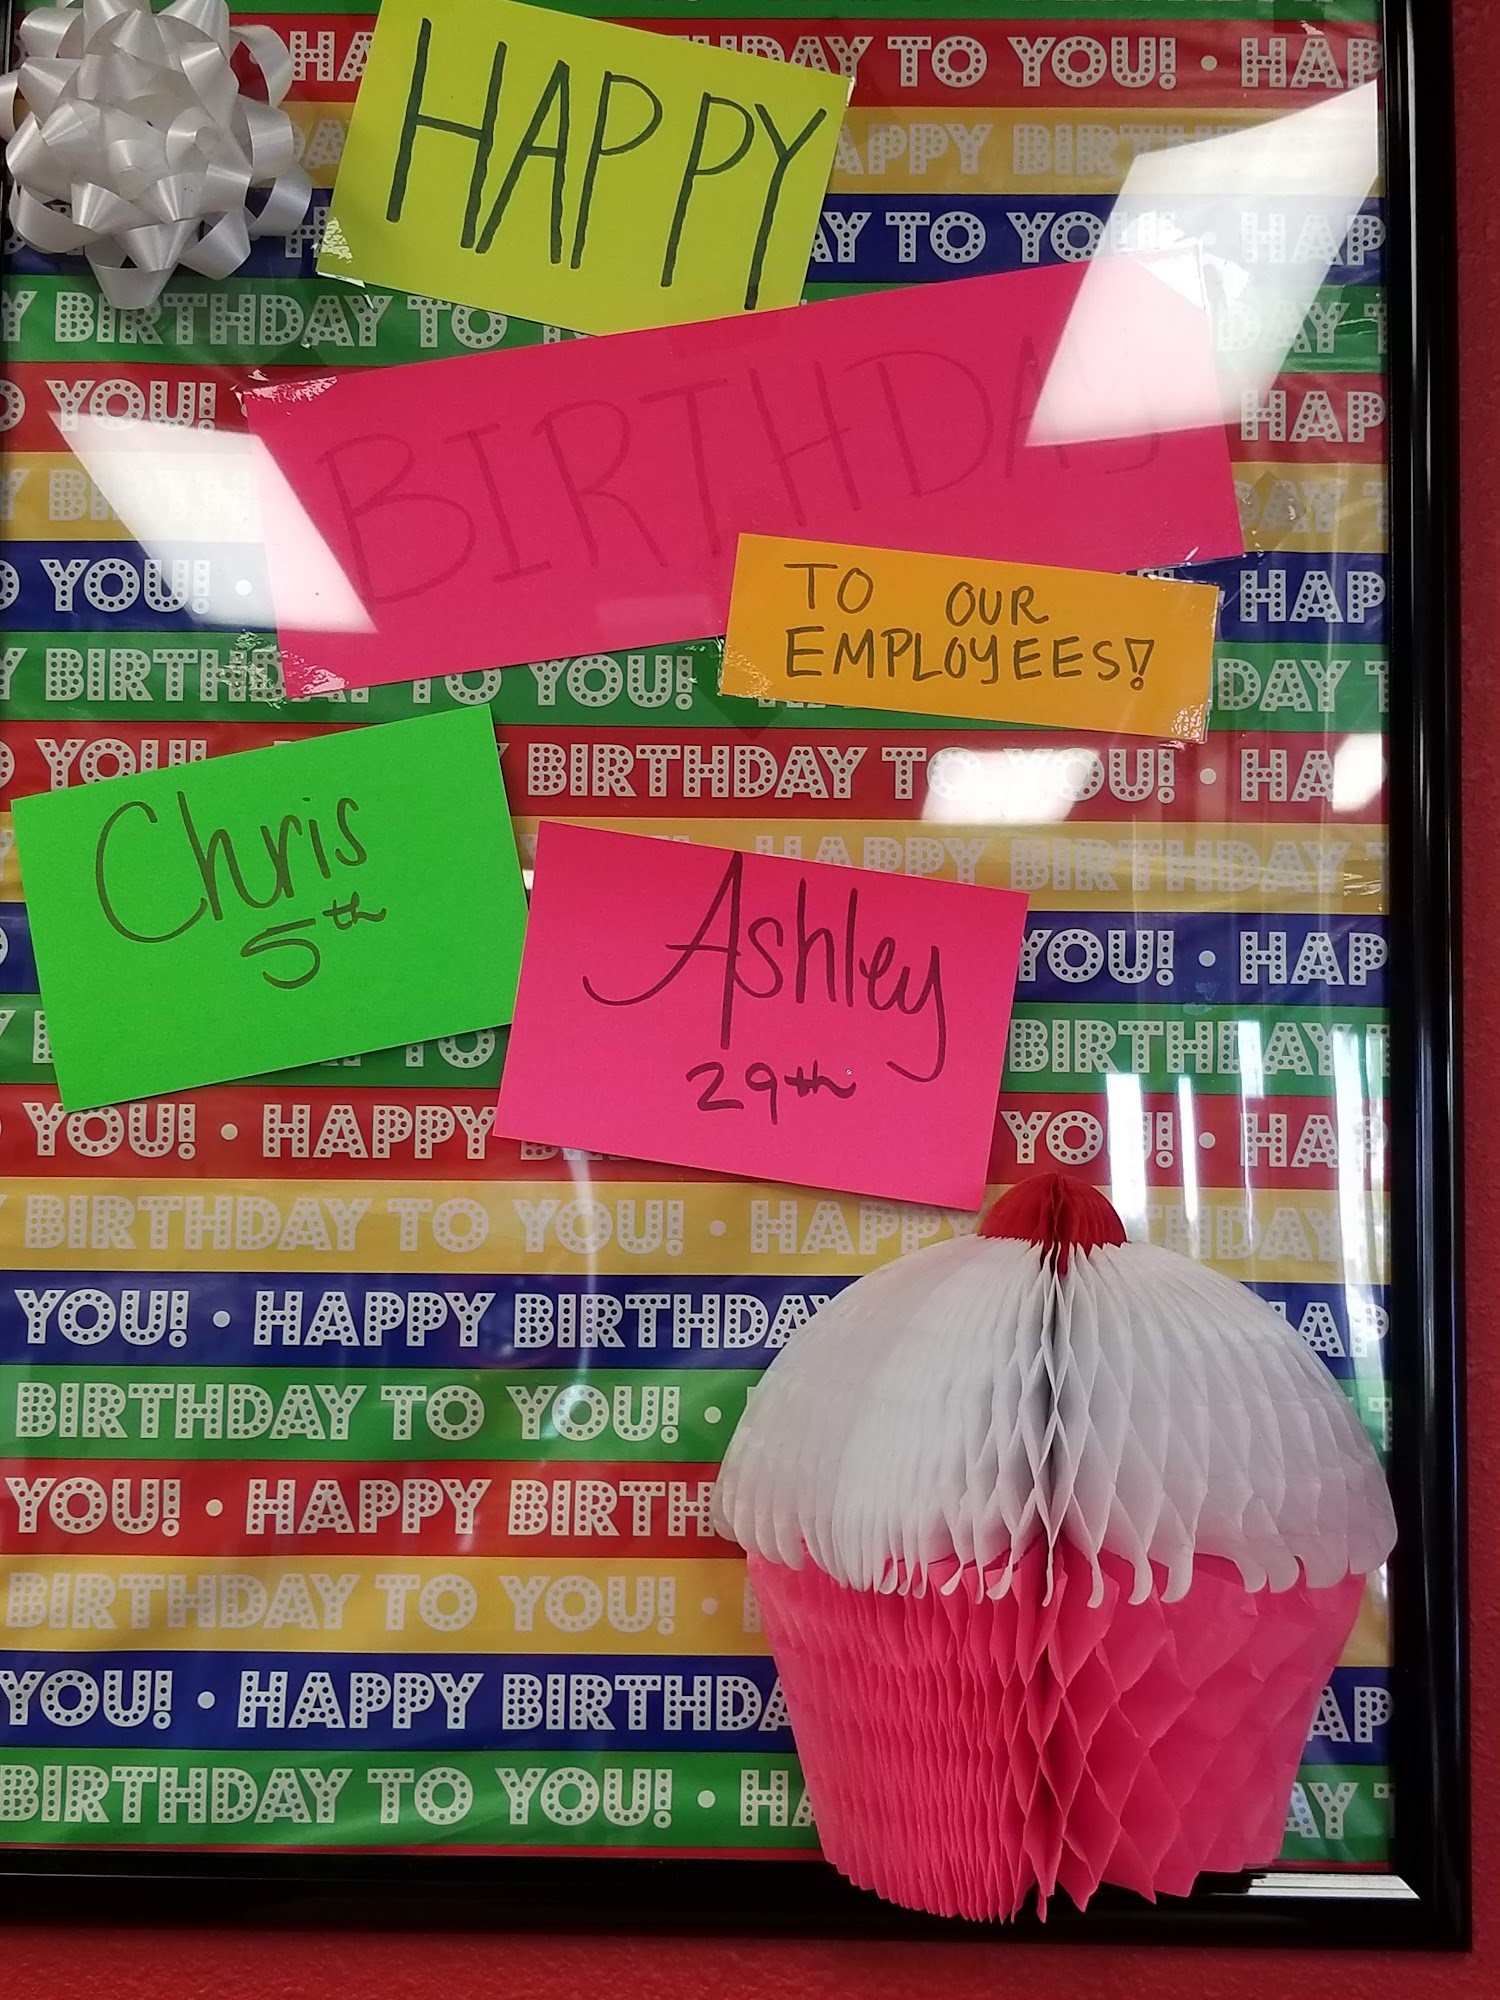 HAPPY
BIRTHDAY
TO OUR
EMPLOYEES!
Chris
5th
Ashley
29th
HA DAY TO YOU! • HAP
DA APPY BIRTH
H AY TO YOU! • HAP
Y BIRTHDAY TO DAY T
O YOU! HAP
Y BI DAY T
O YOU! • HAP
Y BIRTHD TO YOU! DAY T
O YOU! BIRTHDAY TO YOU! • HA
HAPPY BIRTHDAY T
YOU! • HAP
TO BIRTHDAY
YOU! • HAPPY YOU! • HAP
BIRTHDAY TO YOU! • HAPPY THDAY
YOU! • HAPPY BIRTHDAY AP
BIRTHDAY TO YOU! •
YOU! • HAPPY BIRTH
BIRTHDAY TO YOU! •
YOU! • HAPPY BIRTHDA AP
BIRTHDAY TO YOU! • HA AY T